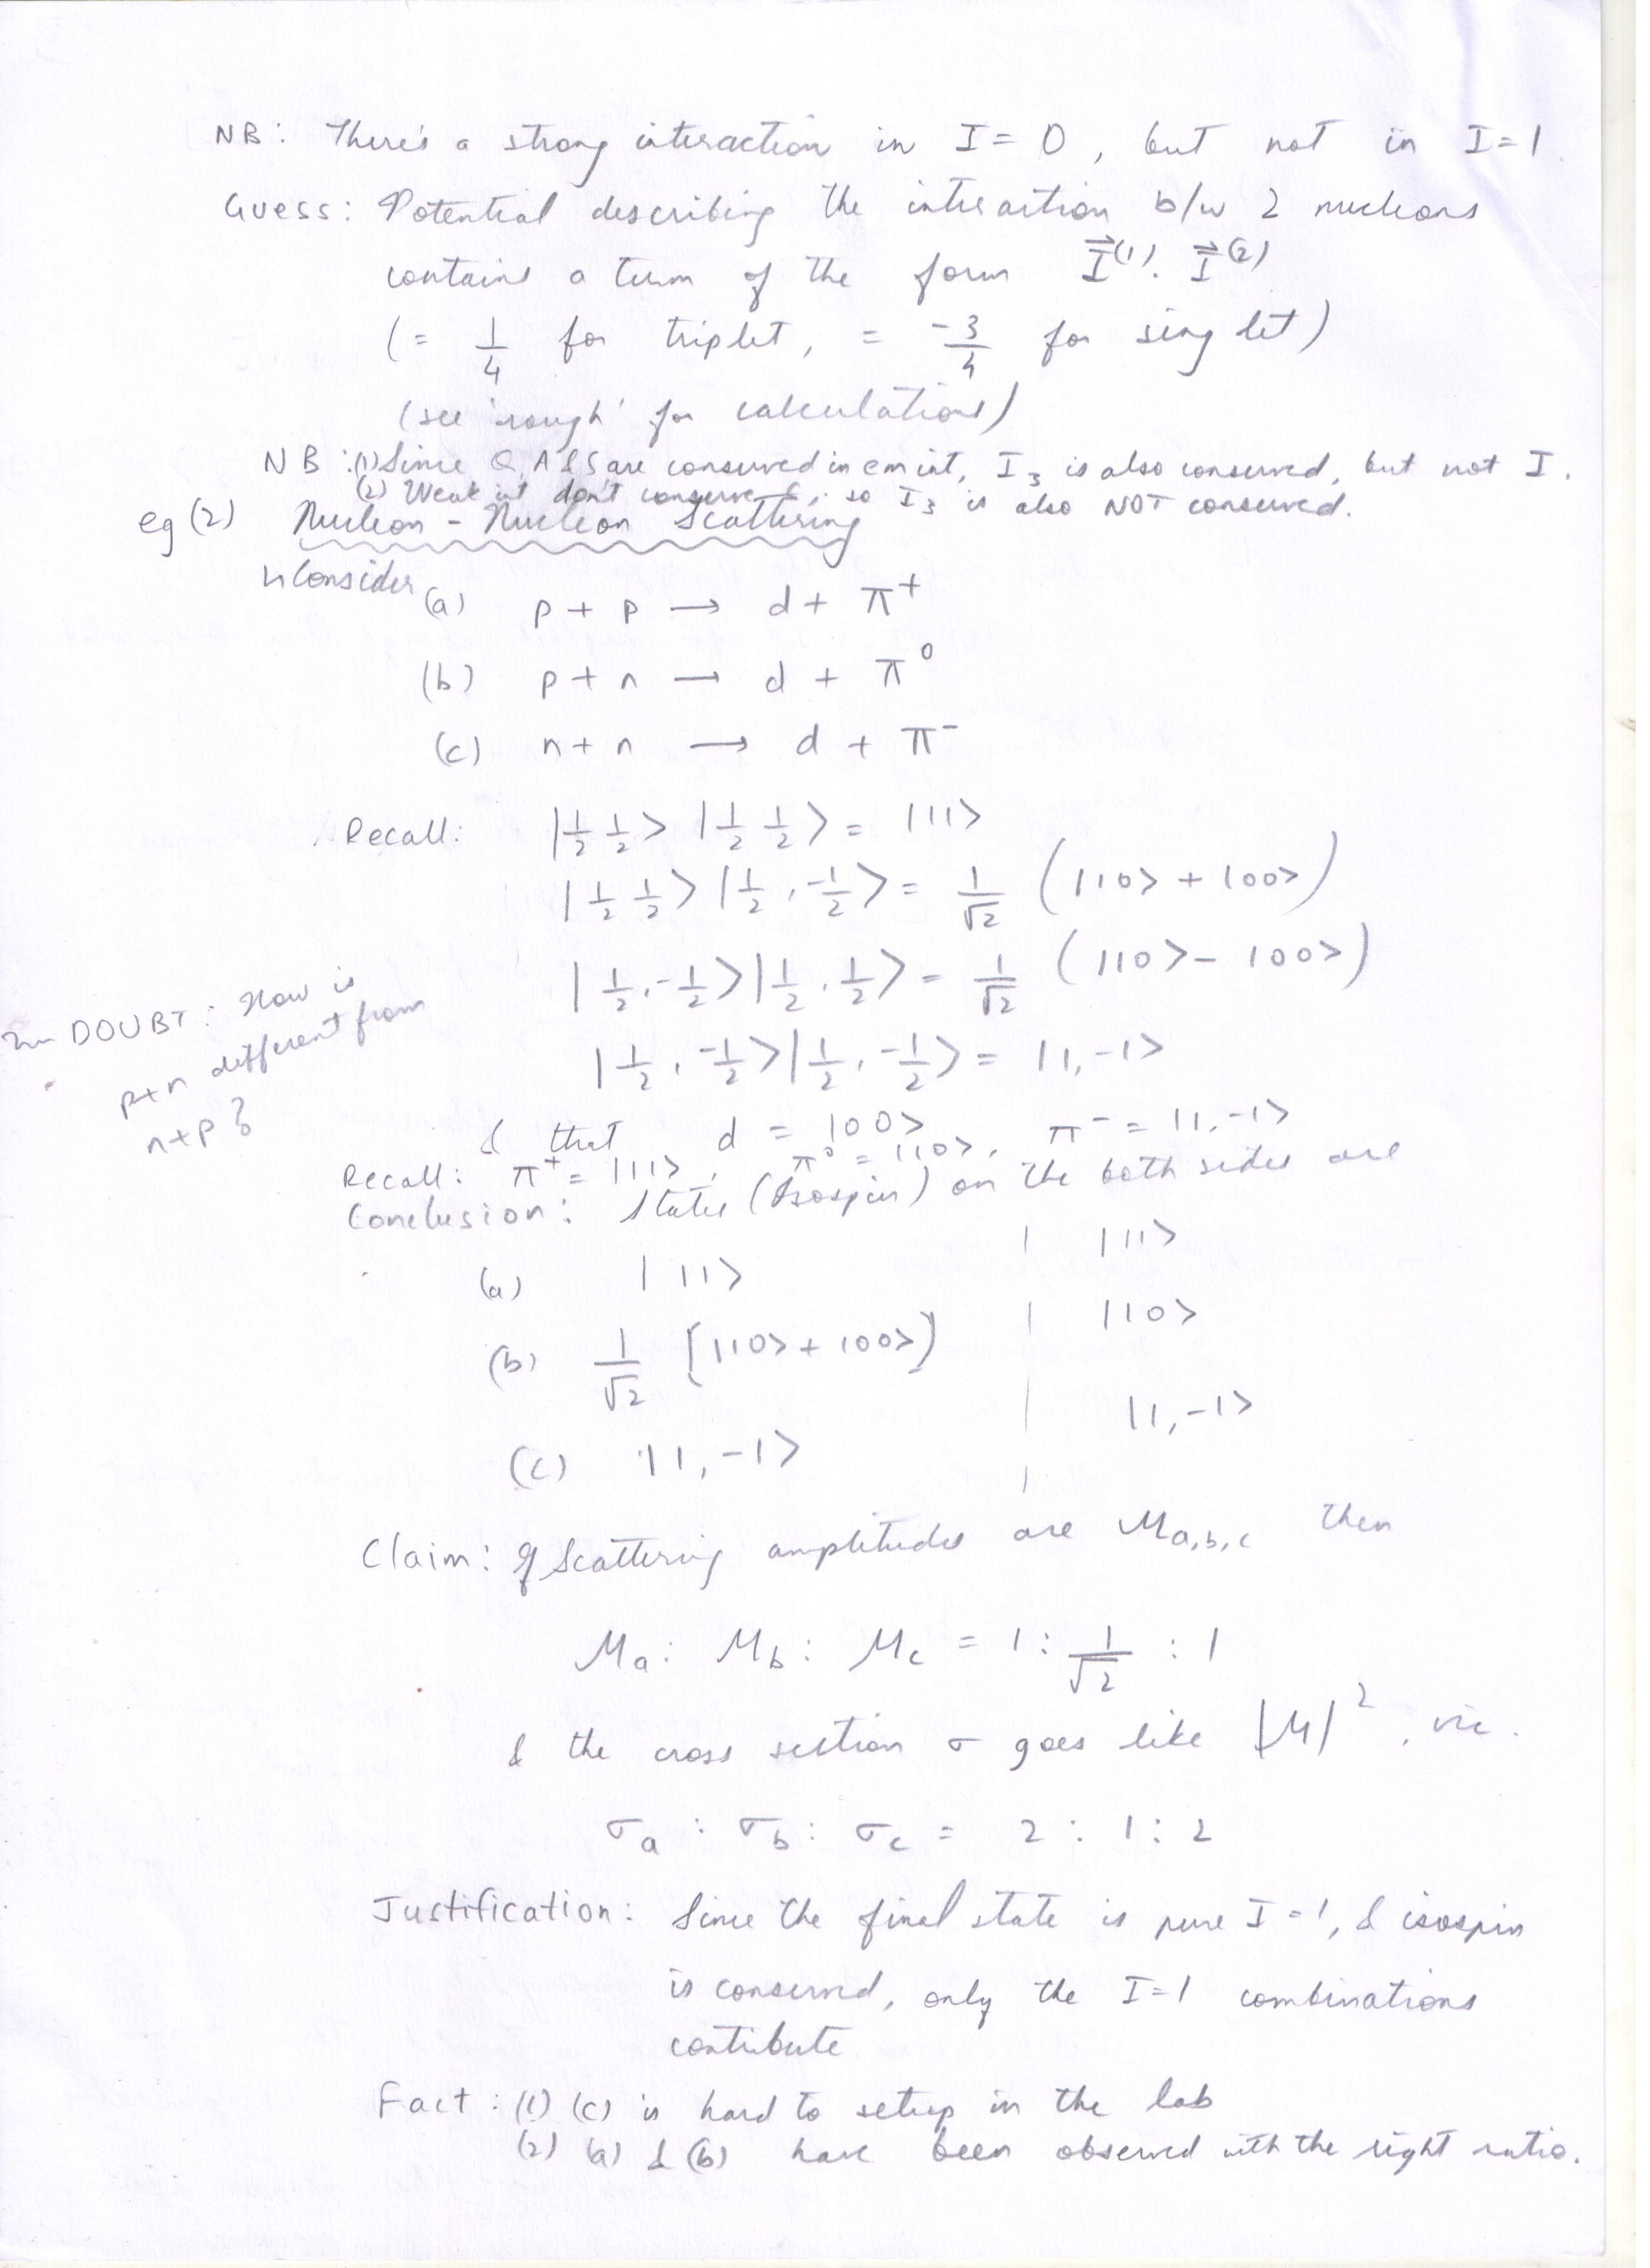 NB: There's a strong interaction in I=0, but not in I=1
Guess: Potential describing the interaction b/w 2 nucleons
contains a term of the form \vec{I}^{(1)}. \vec{I}^{(2)}
(= 1/4 for triplet, = -3/4 for singlet)
(see 'rough' for calculations)
NB: (1) Since Q, A & S are conserved in em int, I_3 is also conserved, but not I.
(2) Weak int don't conserve S, so I_3 is also NOT conserved.
eg (2) Nucleon - Nucleon Scattering
Consider
(a) p + p → d + π^+
(b) p + n → d + π^0
(c) n + n → d + π^-
Recall: |1/2 1/2> |1/2 1/2> = |11>
|1/2 1/2> |1/2, -1/2> = 1/√2 (|10> + |00>)
|1/2, -1/2> |1/2, 1/2> = 1/√2 (|10> - |00>)
DOUBT: How is
p+n different from
n+p?
|1/2, -1/2> |1/2, -1/2> = |1,-1>
& that d = |00>
Recall: π^+ = |11>, π^0 = |10>, π^- = |1,-1>
Conclusion: States (Isospin) on the both sides are
(a) |11> | |11>
(b) 1/√2 [|10> + |00>) | |10>
(c) |1,-1> | |1,-1>
Claim: If Scattering amplitudes are M_{a,b,c} then
M_a : M_b : M_c = 1 : 1/√2 : 1
& the cross section σ goes like |M|^2, viz.
σ_a : σ_b : σ_c = 2 : 1 : 2
Justification: Since the final state is pure I=1, & isospin
is conserved, only the I=1 combinations
contribute
Fact: (1) (c) is hard to setup in the lab
(2) (a) & (b) have been observed with the right ratio.